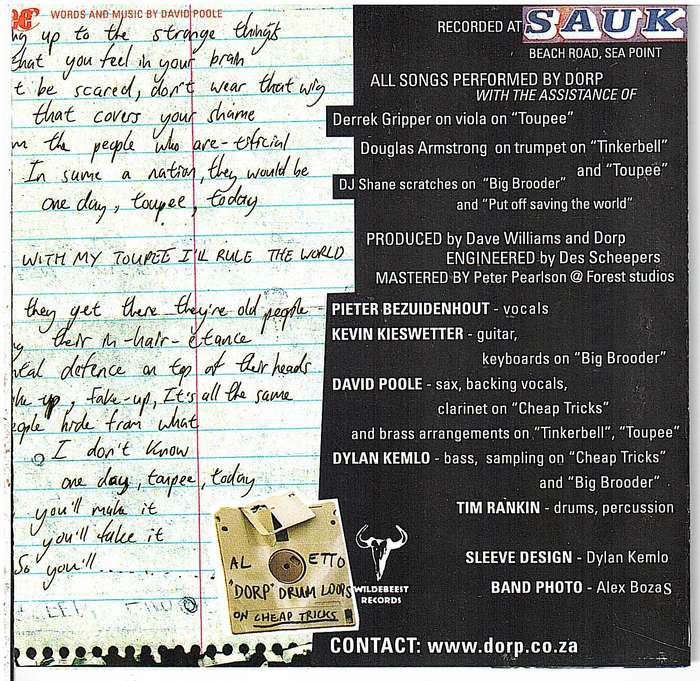 WORDS AND MUSIC BY DAVID POOLE
up to the strange things
that you feel in your brain
t be scared, don't wear that wig
that covers your shame
m the people who are-tificial
In sume a nation, they would be
one day, toupee, today
WITH MY TOUPEE I'LL RULE THE WORLD
they get there they're old people -
their in-hair-etance
ntal defence on top of their heads
ke-up, fake-up, It's all the same
eople hide from what
I don't know
one day, toupee, today
you'll make it
you'll take it
So you'll......
AL ETTO
"DORP" DRUM LOOPS
ON CHEAP TRICKS
RECORDED AT SAUK
BEACH ROAD, SEA POINT
ALL SONGS PERFORMED BY DORP
WITH THE ASSISTANCE OF
Derrek Gripper on viola on "Toupee"
Douglas Armstrong on trumpet on "Tinkerbell"
and "Toupee"
DJ Shane scratches on "Big Brooder"
and "Put off saving the world"
PRODUCED by Dave Williams and Dorp
ENGINEERED by Des Scheepers
MASTERED BY Peter Pearlson @ Forest studios
PIETER BEZUIDENHOUT - vocals
KEVIN KIESWETTER - guitar,
keyboards on "Big Brooder"
DAVID POOLE - sax, backing vocals,
clarinet on "Cheap Tricks"
and brass arrangements on "Tinkerbell", "Toupee"
DYLAN KEMLO - bass, sampling on "Cheap Tricks"
and "Big Brooder"
TIM RANKIN - drums, percussion
SLEEVE DESIGN - Dylan Kemlo
BAND PHOTO - Alex Bozas
WILDEBEEST
RECORDS
CONTACT: www.dorp.co.za